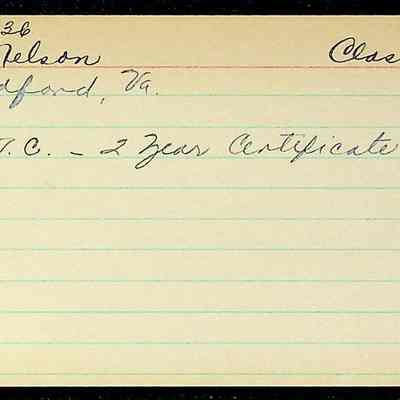 36
Nelson Clas
dford, Va.
T.C. - 2 Year Certificate